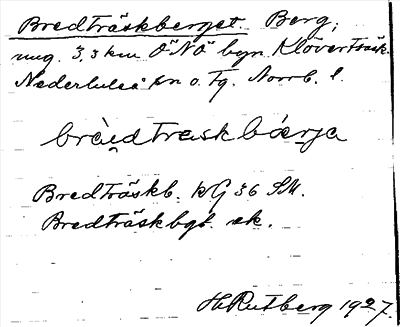 Bredträskberget. Berg,
ung. 3,3 km ÖNÖ byn Klöverträsk
Nederluleå sn o. tg. Norrb. l.
bràidtraskbárja
Bredträskb. KG 36 SM.
Bredträskbgt. ek.
H. Rutberg 1927.